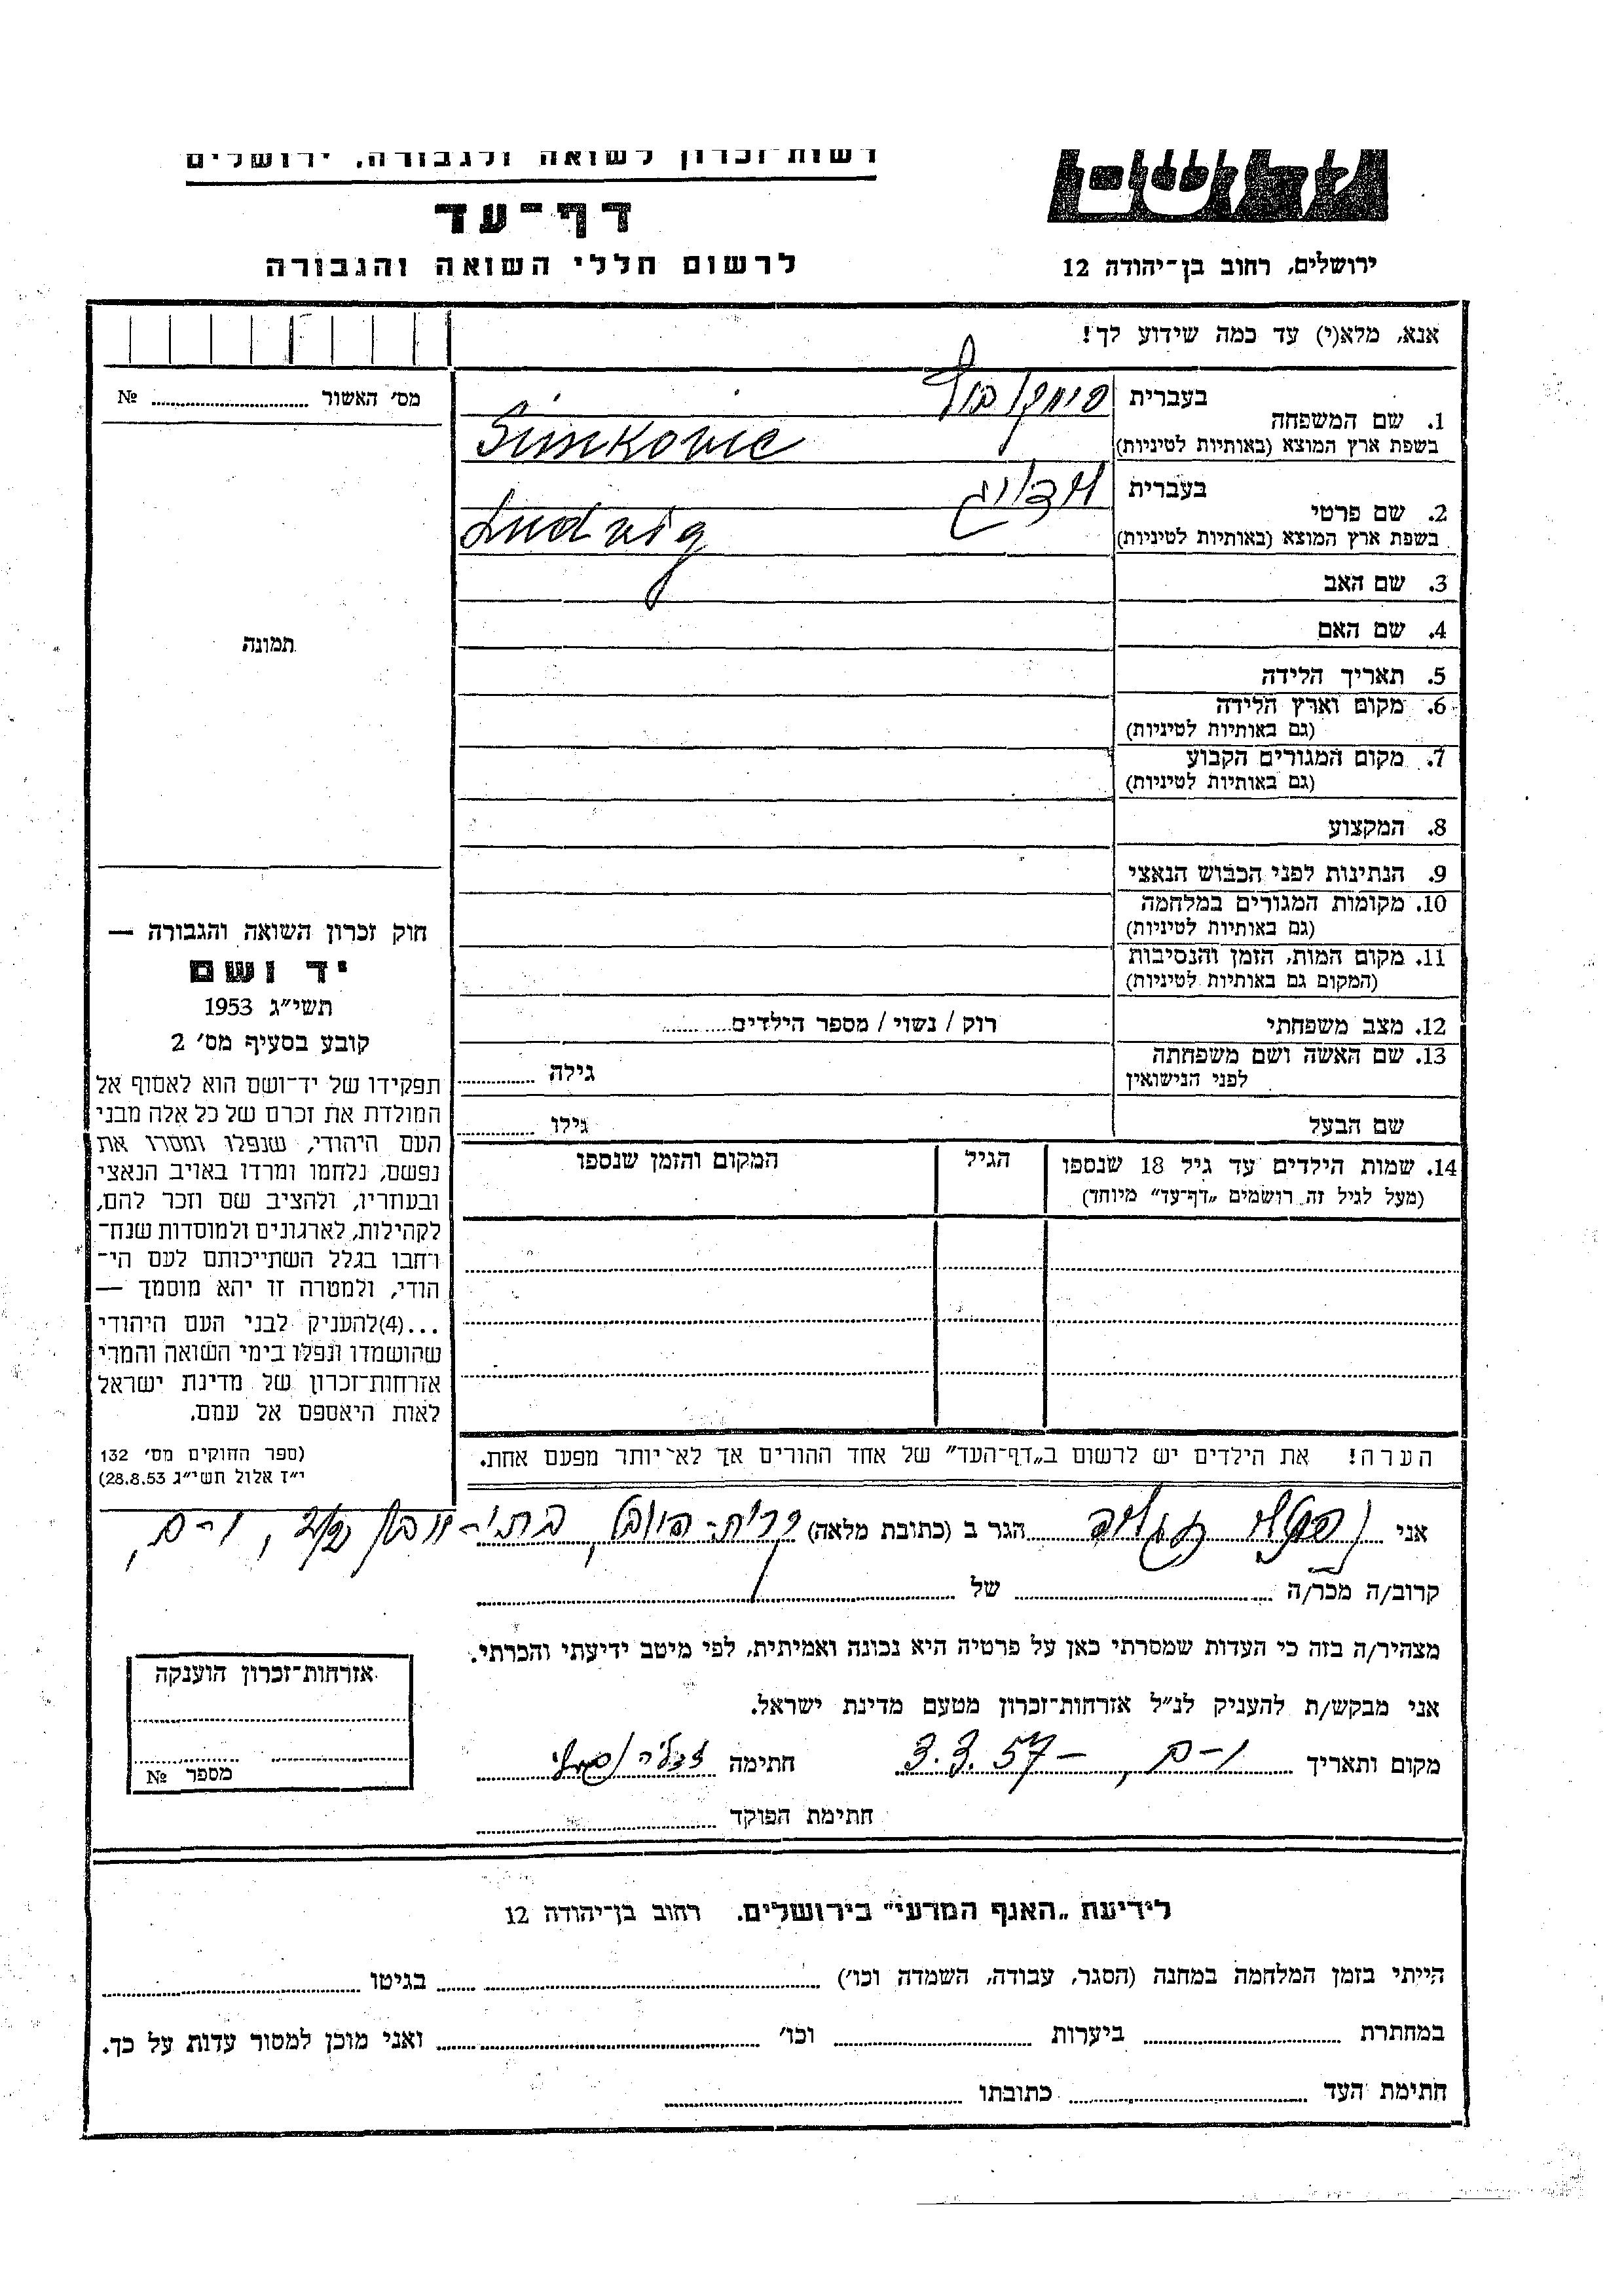 רשות־זכרון לשואה ולגבורה, ירושלים
דף־עד
לרשום חללי השואה והגבורה
ירושלים, רחוב בן־יהודה 12
אנא, מלא(י) עד כמה שידוע לך!
מס׳ האשור № 
1. שם המשפחה
בעברית
בשפת ארץ המוצא (באותיות לטיניות) Simkovic
2. שם פרטי
בעברית לודויג
בשפת ארץ המוצא (באותיות לטיניות) Ludvig
3. שם האב
4. שם האם
5. תאריך הלידה
6. מקום וארץ הלידה
(גם באותיות לטיניות)
7. מקום המגורים הקבוע
(גם באותיות לטיניות)
8. המקצוע
9. הנתינות לפני הכבוש הנאצי
10. מקומות המגורים במלחמה
(גם באותיות לטיניות)
11. מקום המות, הזמן והנסיבות
(המקום גם באותיות לטיניות)
12. מצב משפחתי רוק / נשוי / מספר הילדים
13. שם האשה ושם משפחתה
לפני הנישואין
גילה
שם הבעל גילו
14. שמות הילדים עד גיל 18 שנספו
(מעל לגיל זה רושמים „דף־עד” מיוחד)
הגיל
המקום והזמן שנספו
תמונה
חוק זכרון השואה והגבורה —
יד ושם
תשי״ג 1953
קובע בסעיף מס׳ 2
תפקידו של יד־ושם הוא לאסוף אל
המולדת את זכרם של כל אלה מבני
העם היהודי, שנפלו ומסרו את
נפשם, נלחמו ומרדו באויב הנאצי
ובעוזריו, ולהציב שם וזכר להם,
לקהילות, לארגונים ולמוסדות שנח־
רחבו בגלל השתייכותם לעם הי־
הודי, ולמטרה זו יהא מוסמך —
...(4)להעניק לבני העם היהודי
שהושמדו ונפלו בימי השואה והמרי
אזרחות־זכרון של מדינת ישראל
לאות היאספם אל עמם.
(ספר החוקים מס׳ 132
י״ז אלול תשי״ג 28.8.53)
הערה! את הילדים יש לרשום ב„דף־העד” של אחד ההורים אך לא יותר מפעם אחת.
אני הגר ב (כתובת מלאה) קרית-יובל, בתי-
קרוב/ה מכר/ה של
מצהיר/ה בזה כי העדות שמסרתי כאן על פרטיה היא נכונה ואמיתית, לפי מיטב ידיעתי והכרתי.
אני מבקש/ת להעניק לנ״ל אזרחות־זכרון מטעם מדינת ישראל.
מקום ותאריך י-ם, – 3.3.57 חתימה
חתימת הפוקד
אזרחות־זכרון הוענקה
מספר №
לידיעת „האגף המדעי” בירושלים. רחוב בן־יהודה 12
הייתי בזמן המלחמה במחנה (הסגר, עבודה, השמדה וכו׳) בגיטו
במחתרת ביערות וכו׳ ואני מוכן למסור עדות על כך.
חתימת העד כתובתו